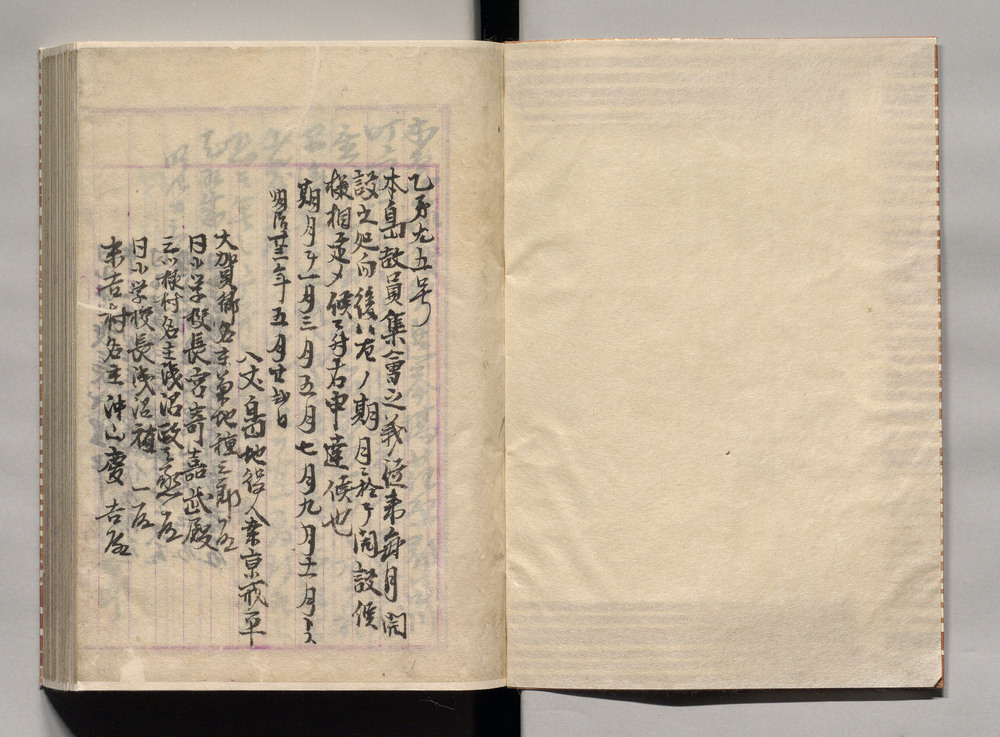 乙第九五号
本島教員集會之義従来毎月開
設之処向後ハ左ノ期月ニ於テ開設候
様相定メ候条右申達候也
期月ハ一月三月五月七月九月十一月トス
明治廿三年五月廿四日
八丈島地役人 京戒平
大賀郷名主菊地種三郎殿
同小学校長宮崎嘉武殿
三ツ根村名主浅沼政之丞殿
同小学校長浅沼禎一殿
末吉村名主沖山慶吉殿